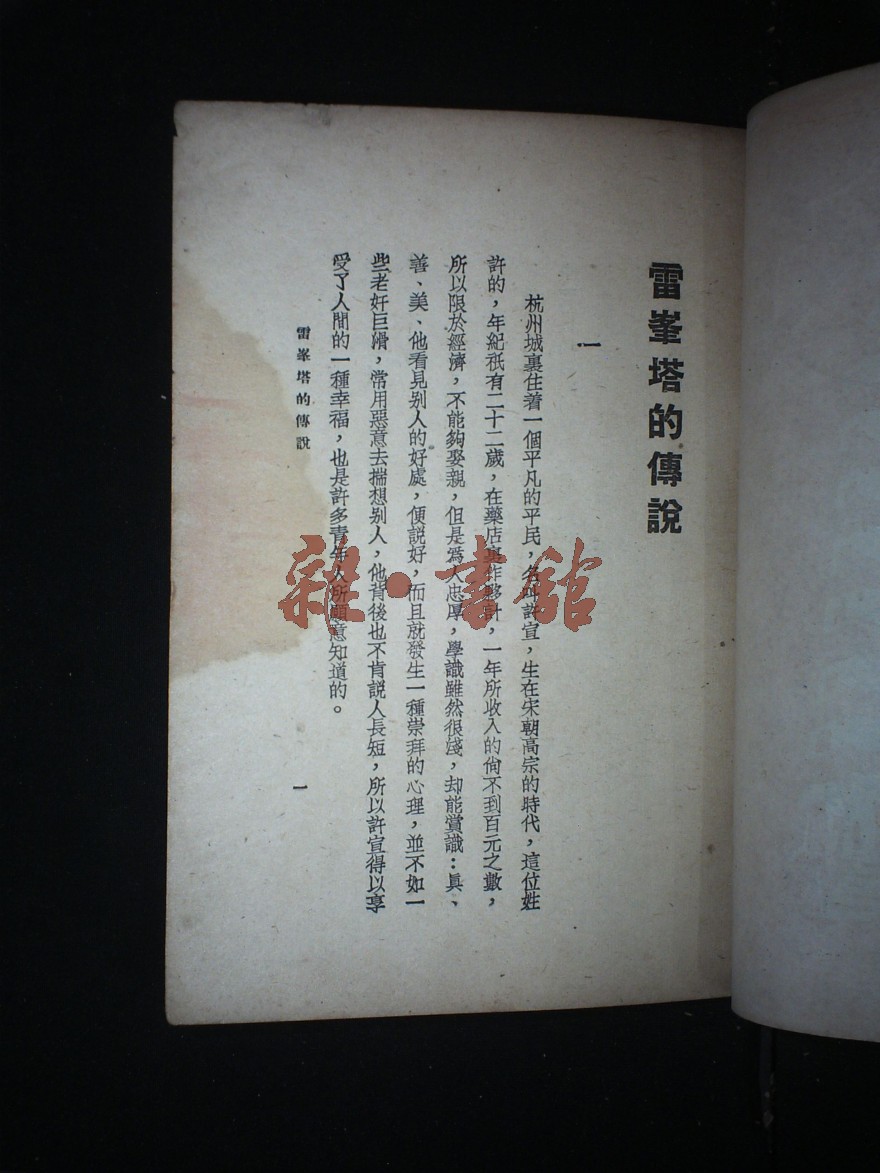 雷峯塔的傳說
一
杭州城裏住着一個平凡的平民，名叫許宣，生在宋朝高宗的時代，這位姓
許的，年紀祇有二十二歲，在藥店裏作夥計，一年所收入的尙不到百元之數，
所以限於經濟，不能夠娶親，但是爲人忠厚，學識雖然很淺，却能賞識：眞、
善、美、他看見別人的好處，便説好，而且就發生一種崇拜的心理，並不如一
些老奸巨滑，常用惡意去揣想別人，他背後也不肯説人長短，所以許宣得以享
受了人間的一種幸福，也是許多青年人所願意知道的。
雷峯塔的傳說
一
雜·書館